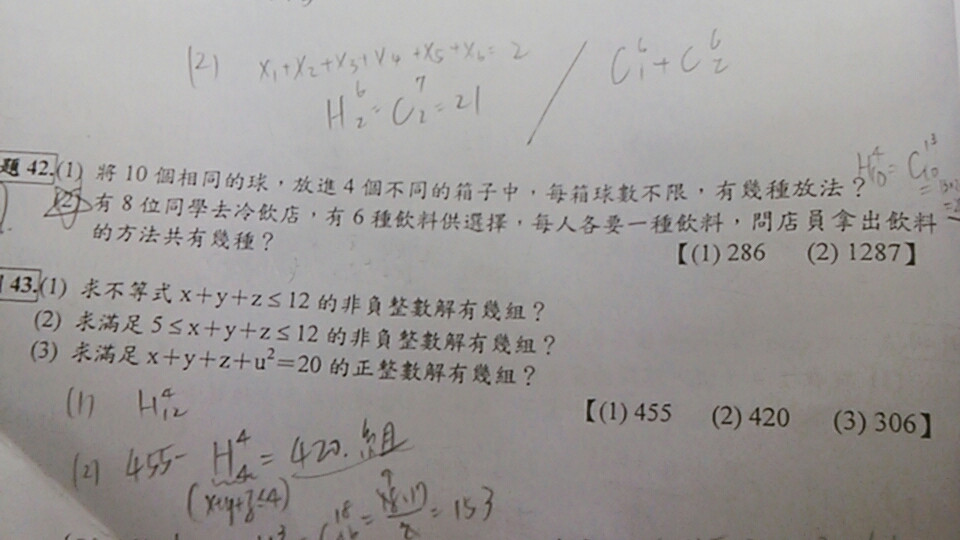 (2) x₁+x₂+x₃+x₄+x₅+x₆=2 / C⁶₁+C⁶₂
H⁶₂=C⁷₂=21
題 42.(1) 將 10 個相同的球，放進 4 個不同的箱子中，每箱球數不限，有幾種放法？ H⁴₁₀=C¹³₁₀
(2) 有 8 位同學去冷飲店，有 6 種飲料供選擇，每人各要一種飲料，問店員拿出飲料
的方法共有幾種？
【(1) 286 (2) 1287】
43.(1) 求不等式 x+y+z≤12 的非負整數解有幾組？
(2) 求滿足 5≤x+y+z≤12 的非負整數解有幾組？
(3) 求滿足 x+y+z+u²=20 的正整數解有幾組？
【(1) 455 (2) 420 (3) 306】
(1) H⁴₁₂
(2) 455-H⁴₄=420.組
(x+y+z≤4)
=153